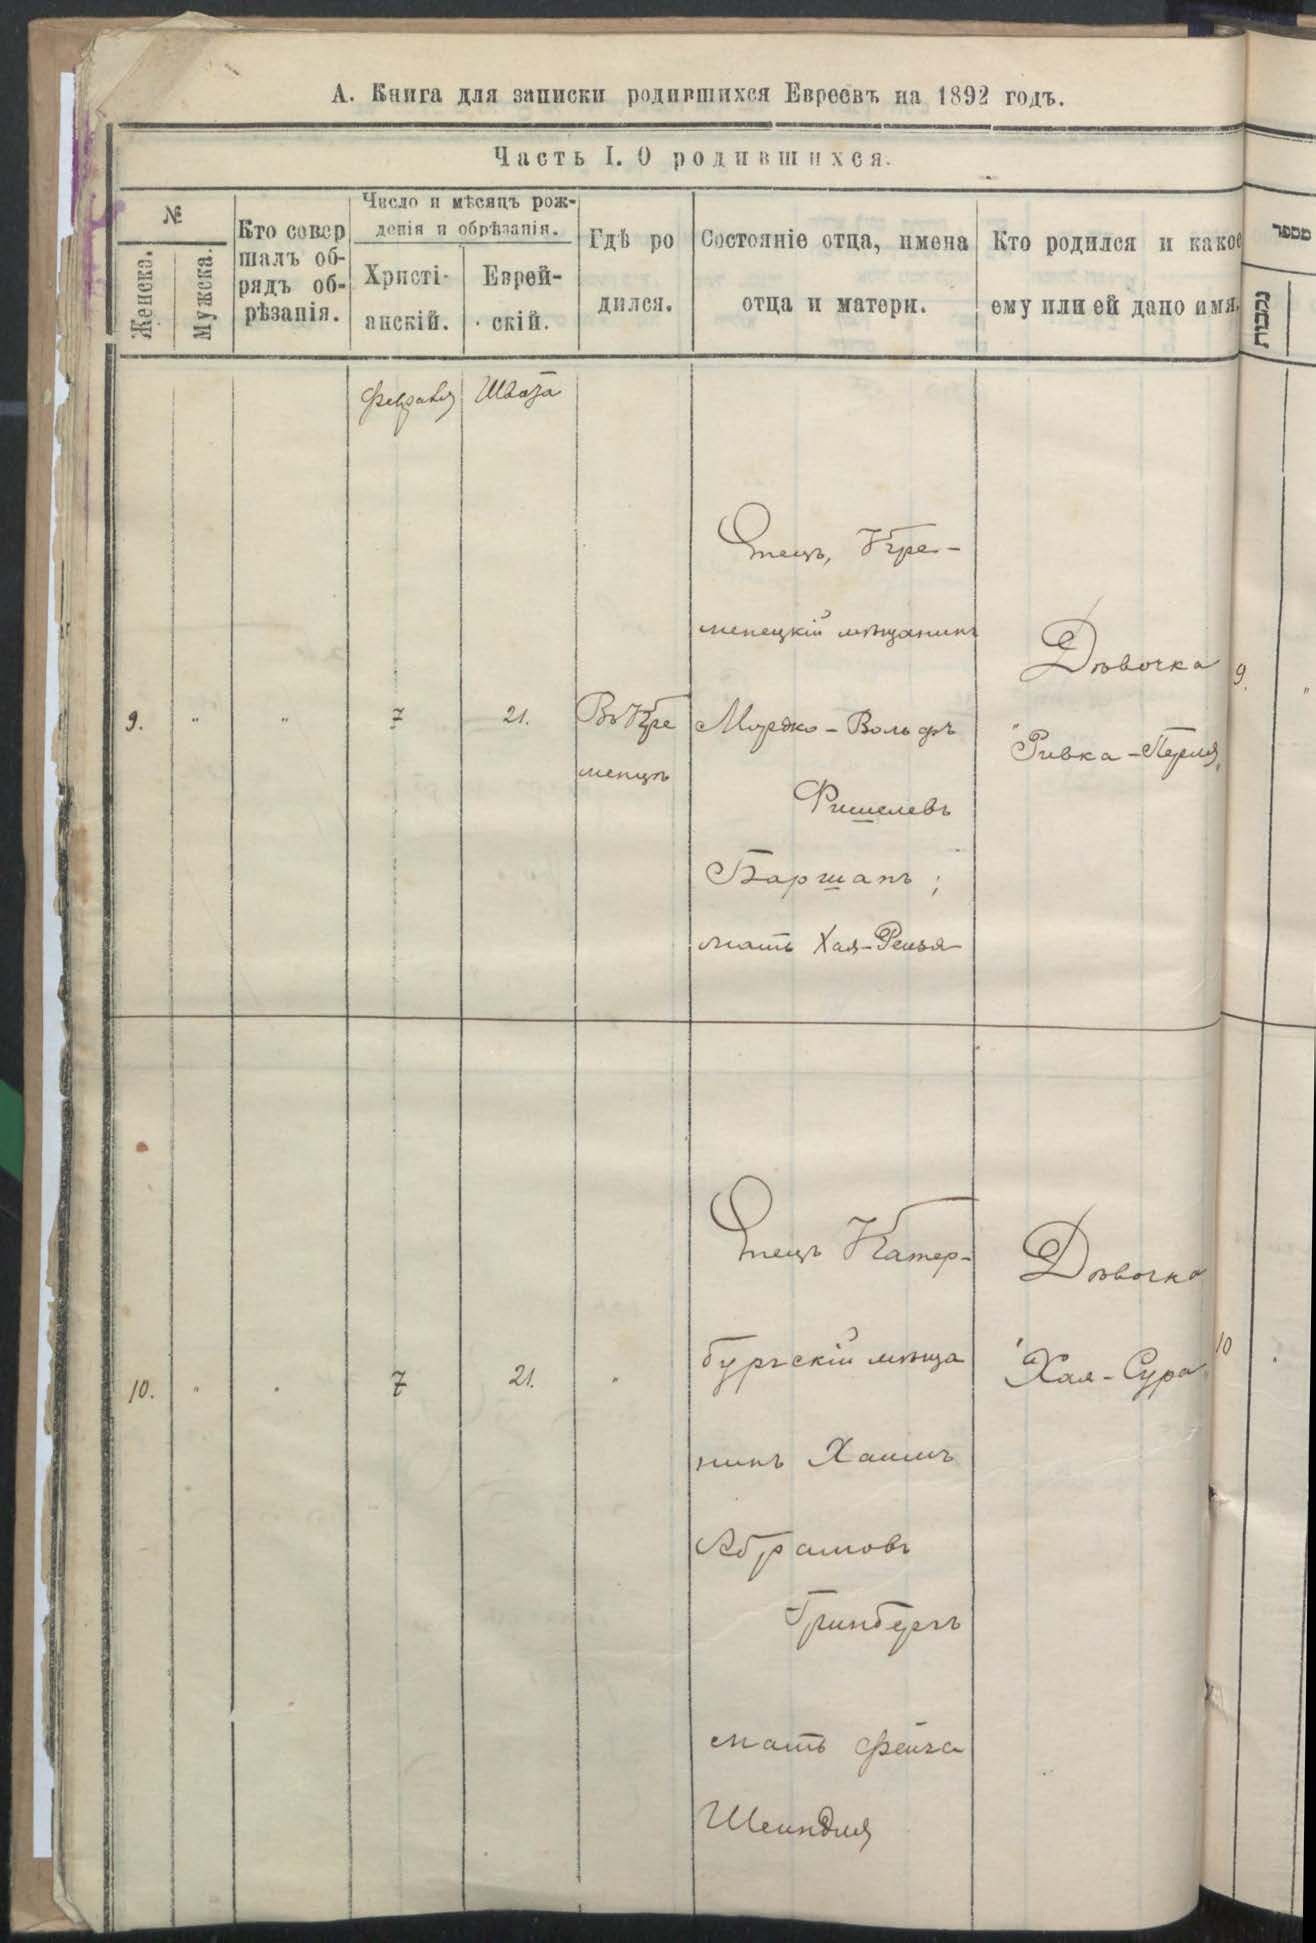 А. Книга для записки родившихся Евреевъ на 1892 годъ.
Часть I. О родившихся.
№
Женска.
Мужска.
Кто совер
шалъ об-
рядъ об-
рѣзанія.
Число и мѣсяцъ рож-
денія и обрѣзанія.
Христі-
анскій.
Еврей-
скій.
Гдѣ ро
дился.
Состояніе отца, имена
отца и матери.
Кто родился и какое
ему или ей дано имя.
מספר
נקבות
февраля
Шватa
9.
"
"
7
21.
Въ Кре
менцѣ
Отецъ, Кре-
менецкій мѣщанинъ
Мордко-Вольфъ
Фишелевъ
Баршапъ;
мать Хая-Рейзя
Дѣвочка
"Ривка-Перля"
9.
"
10.
"
"
7
21.
"
Отецъ Катер-
бургскій мѣща
нинъ Хаимъ
Абрамовъ
Гринбергъ
мать Фейга
Шейндля
Дѣвочка
"Хая-Сура"
10
"